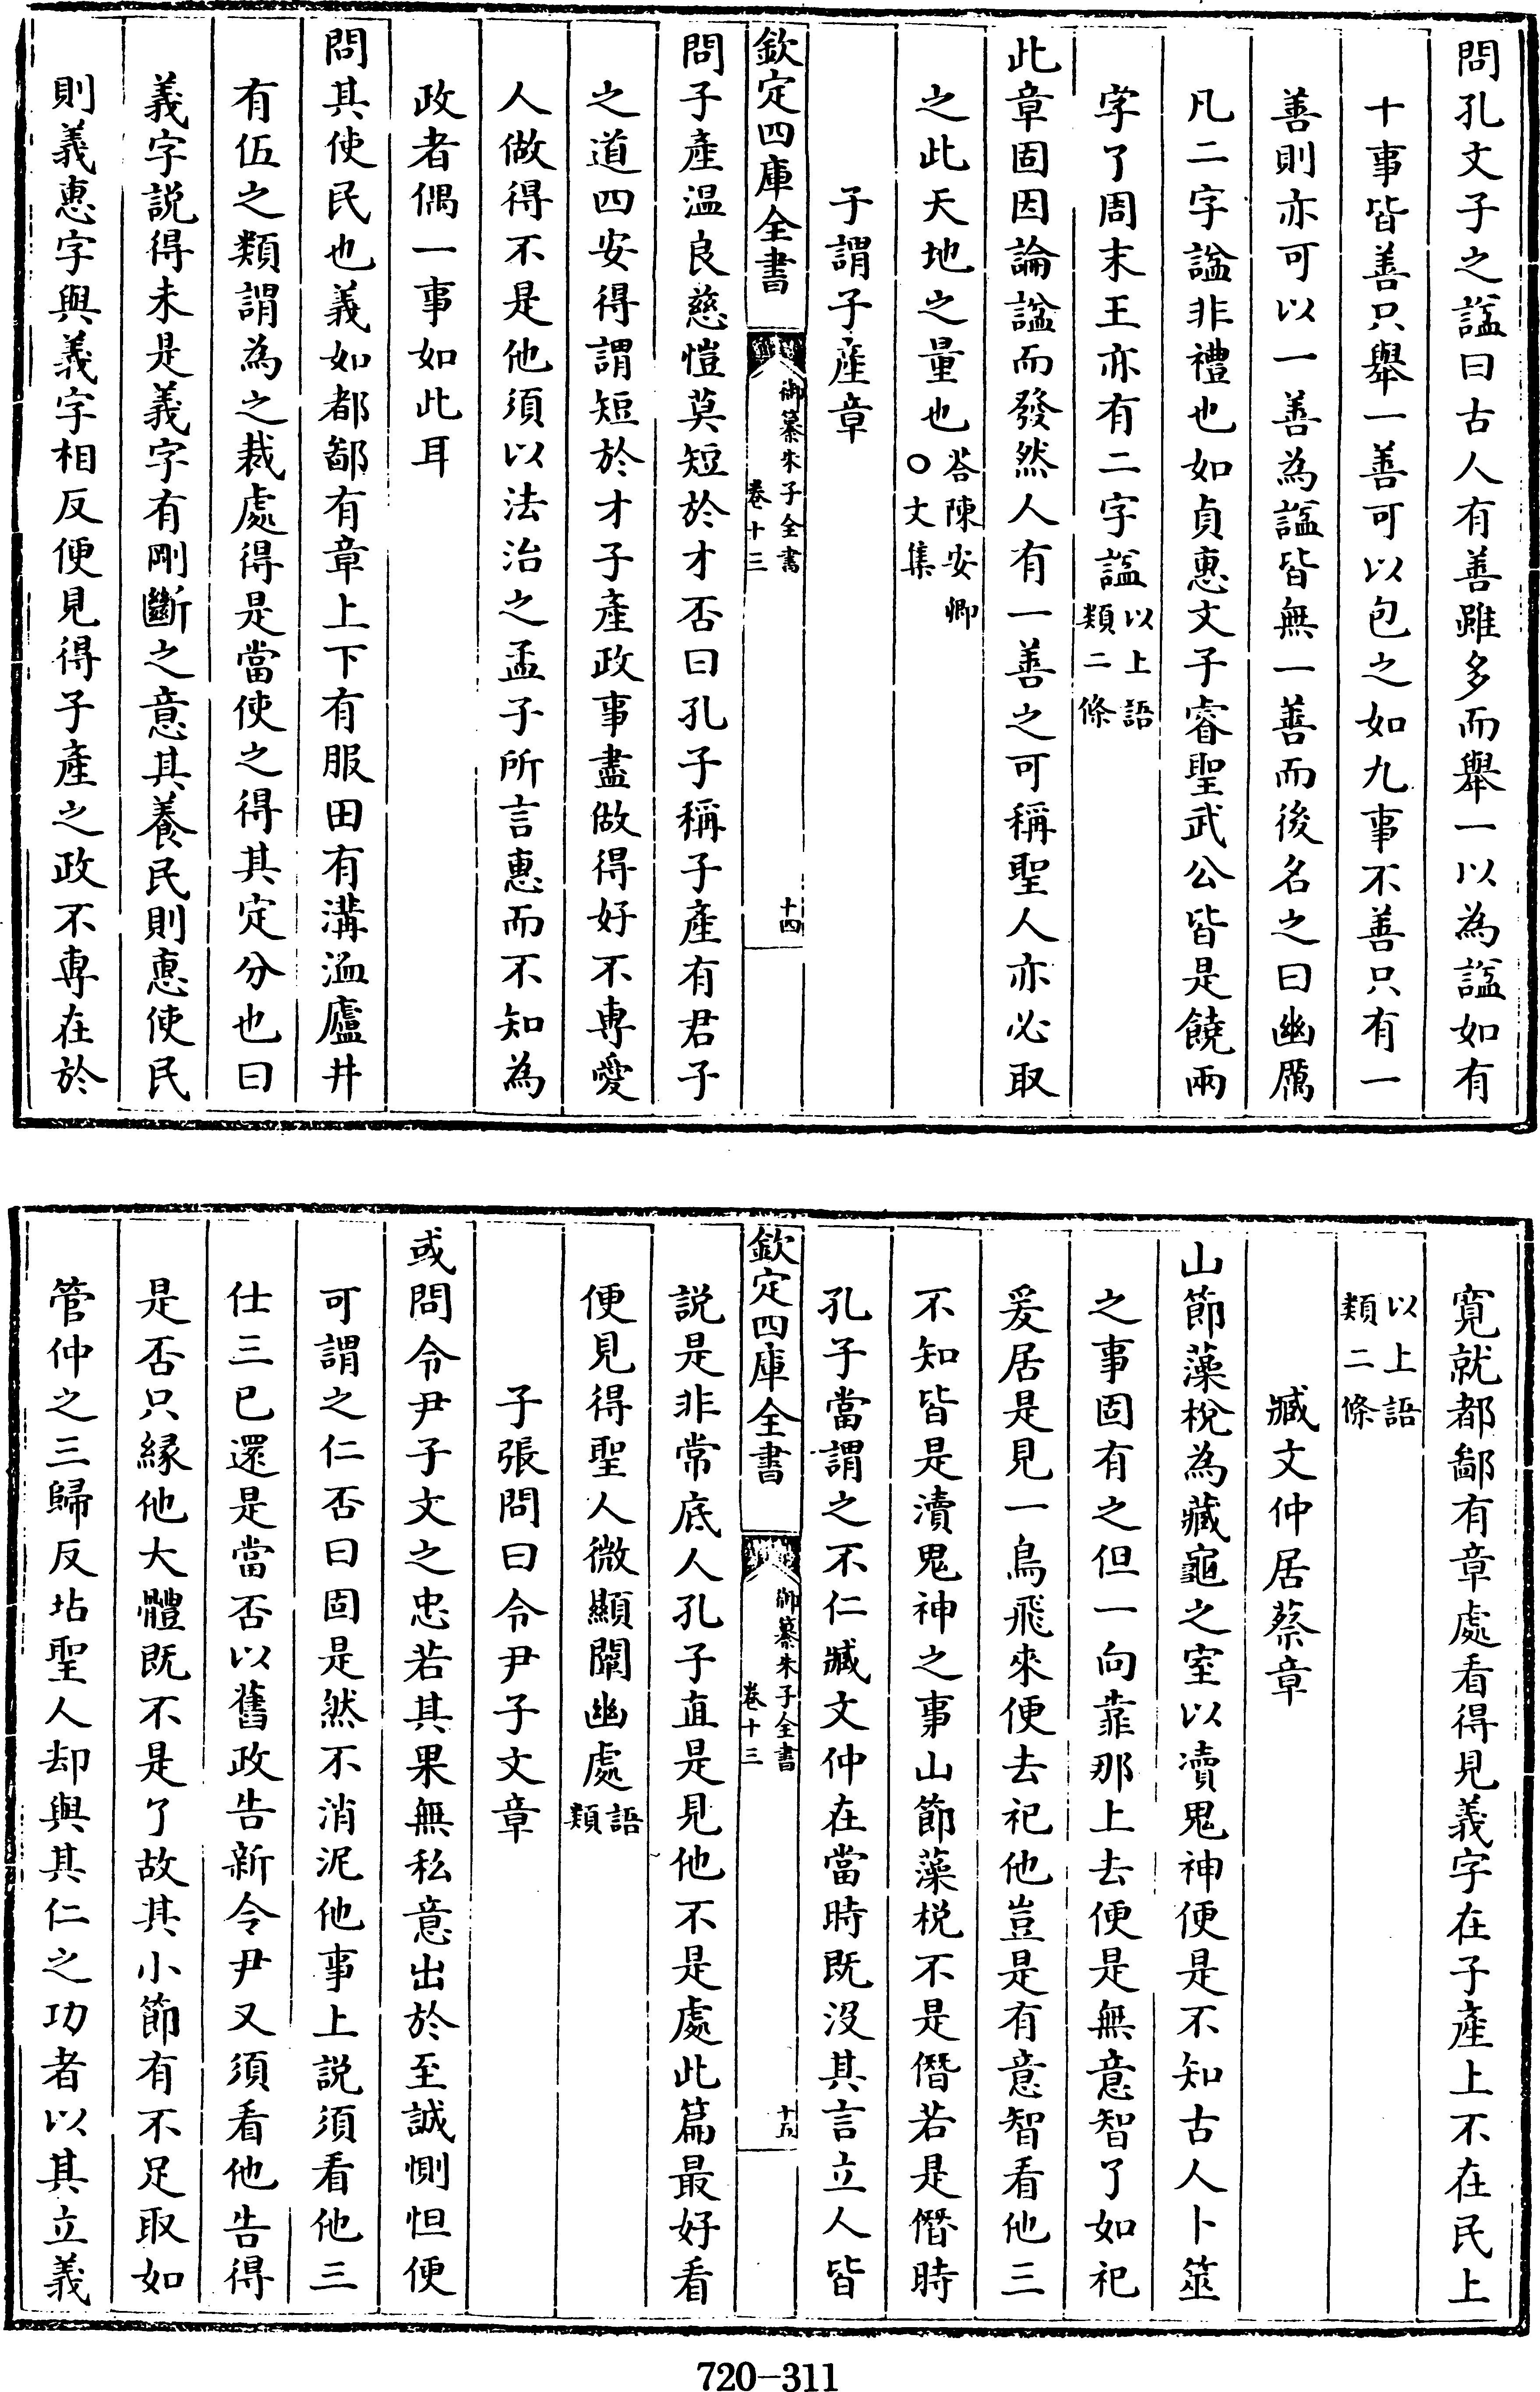 問孔文子之諡曰古人有善雖多而舉一以為諡如有
十事皆善只舉一善可以包之如九事不善只有一
善則亦可以一善為諡皆無一善而後名之曰幽厲
凡二字諡非禮也如貞惠文子睿聖武公皆是饒兩
字了周末王亦有二字諡以上語類二條
此章固因論諡而發然人有一善之可稱聖人亦必取
之此天地之量也答陳安卿〇文集
子謂子產章
欽定四庫全書 御纂朱子全書 卷十三 十四
問子產温良慈愷莫短於才否曰孔子稱子產有君子
之道四安得謂短於才子產政事盡做得好不專愛
人做得不是他須以法治之孟子所言惠而不知為
政者偶一事如此耳
問其使民也義如都鄙有章上下有服田有溝洫廬井
有伍之類謂為之裁處得是當使之得其定分也曰
義字説得未是義字有剛斷之意其養民則惠使民
則義惠字與義字相反便見得子產之政不專在於
寬就都鄙有章處看得見義字在子產上不在民上
以上語類二條
臧文仲居蔡章
山節藻梲為藏龜之室以瀆鬼神便是不知古人卜筮
之事固有之但一向靠那上去便是無意智了如祀
爰居是見一鳥飛來便去祀他豈是有意智看他三
不知皆是瀆鬼神之事山節藻梲不是僭若是僭時
孔子當謂之不仁臧文仲在當時既没其言立人皆
欽定四庫全書 御纂朱子全書 卷十三 十五
説是非常底人孔子直是見他不是處此篇最好看
便見得聖人微顯闡幽處語類
子張問曰令尹子文章
或問令尹子文之忠若其果無私意出於至誠惻怛便
可謂之仁否曰固是然不消泥他事上説須看他三
仕三已還是當否以舊政告新令尹又須看他告得
是否只縁他大體既不是了故其小節有不足取如
管仲之三歸反坫聖人却與其仁之功者以其立義
720-311